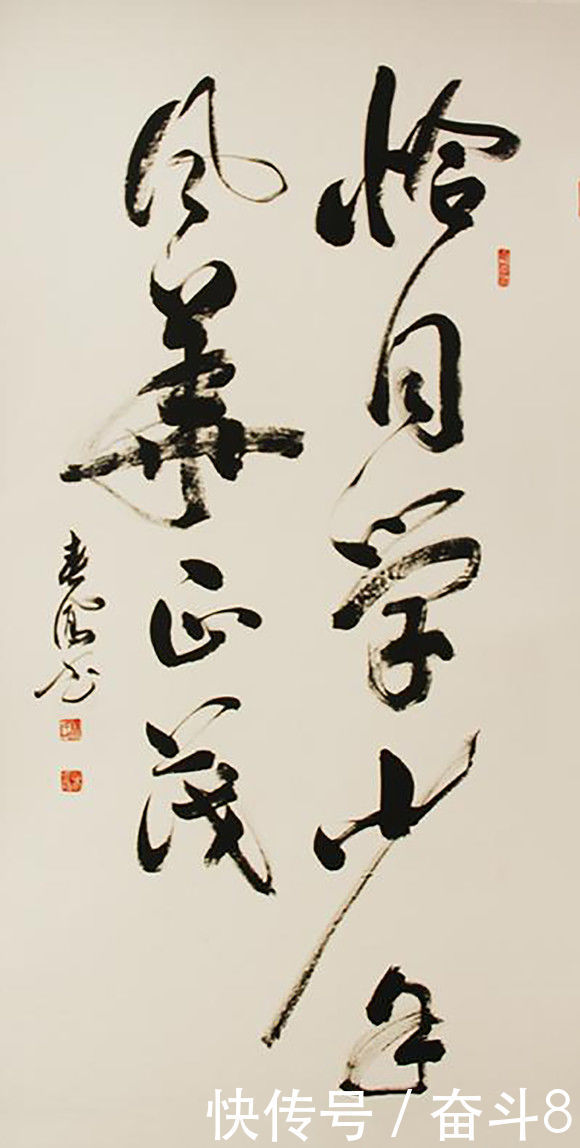 恰同学少年
风华正茂
快传号 / 奋斗8